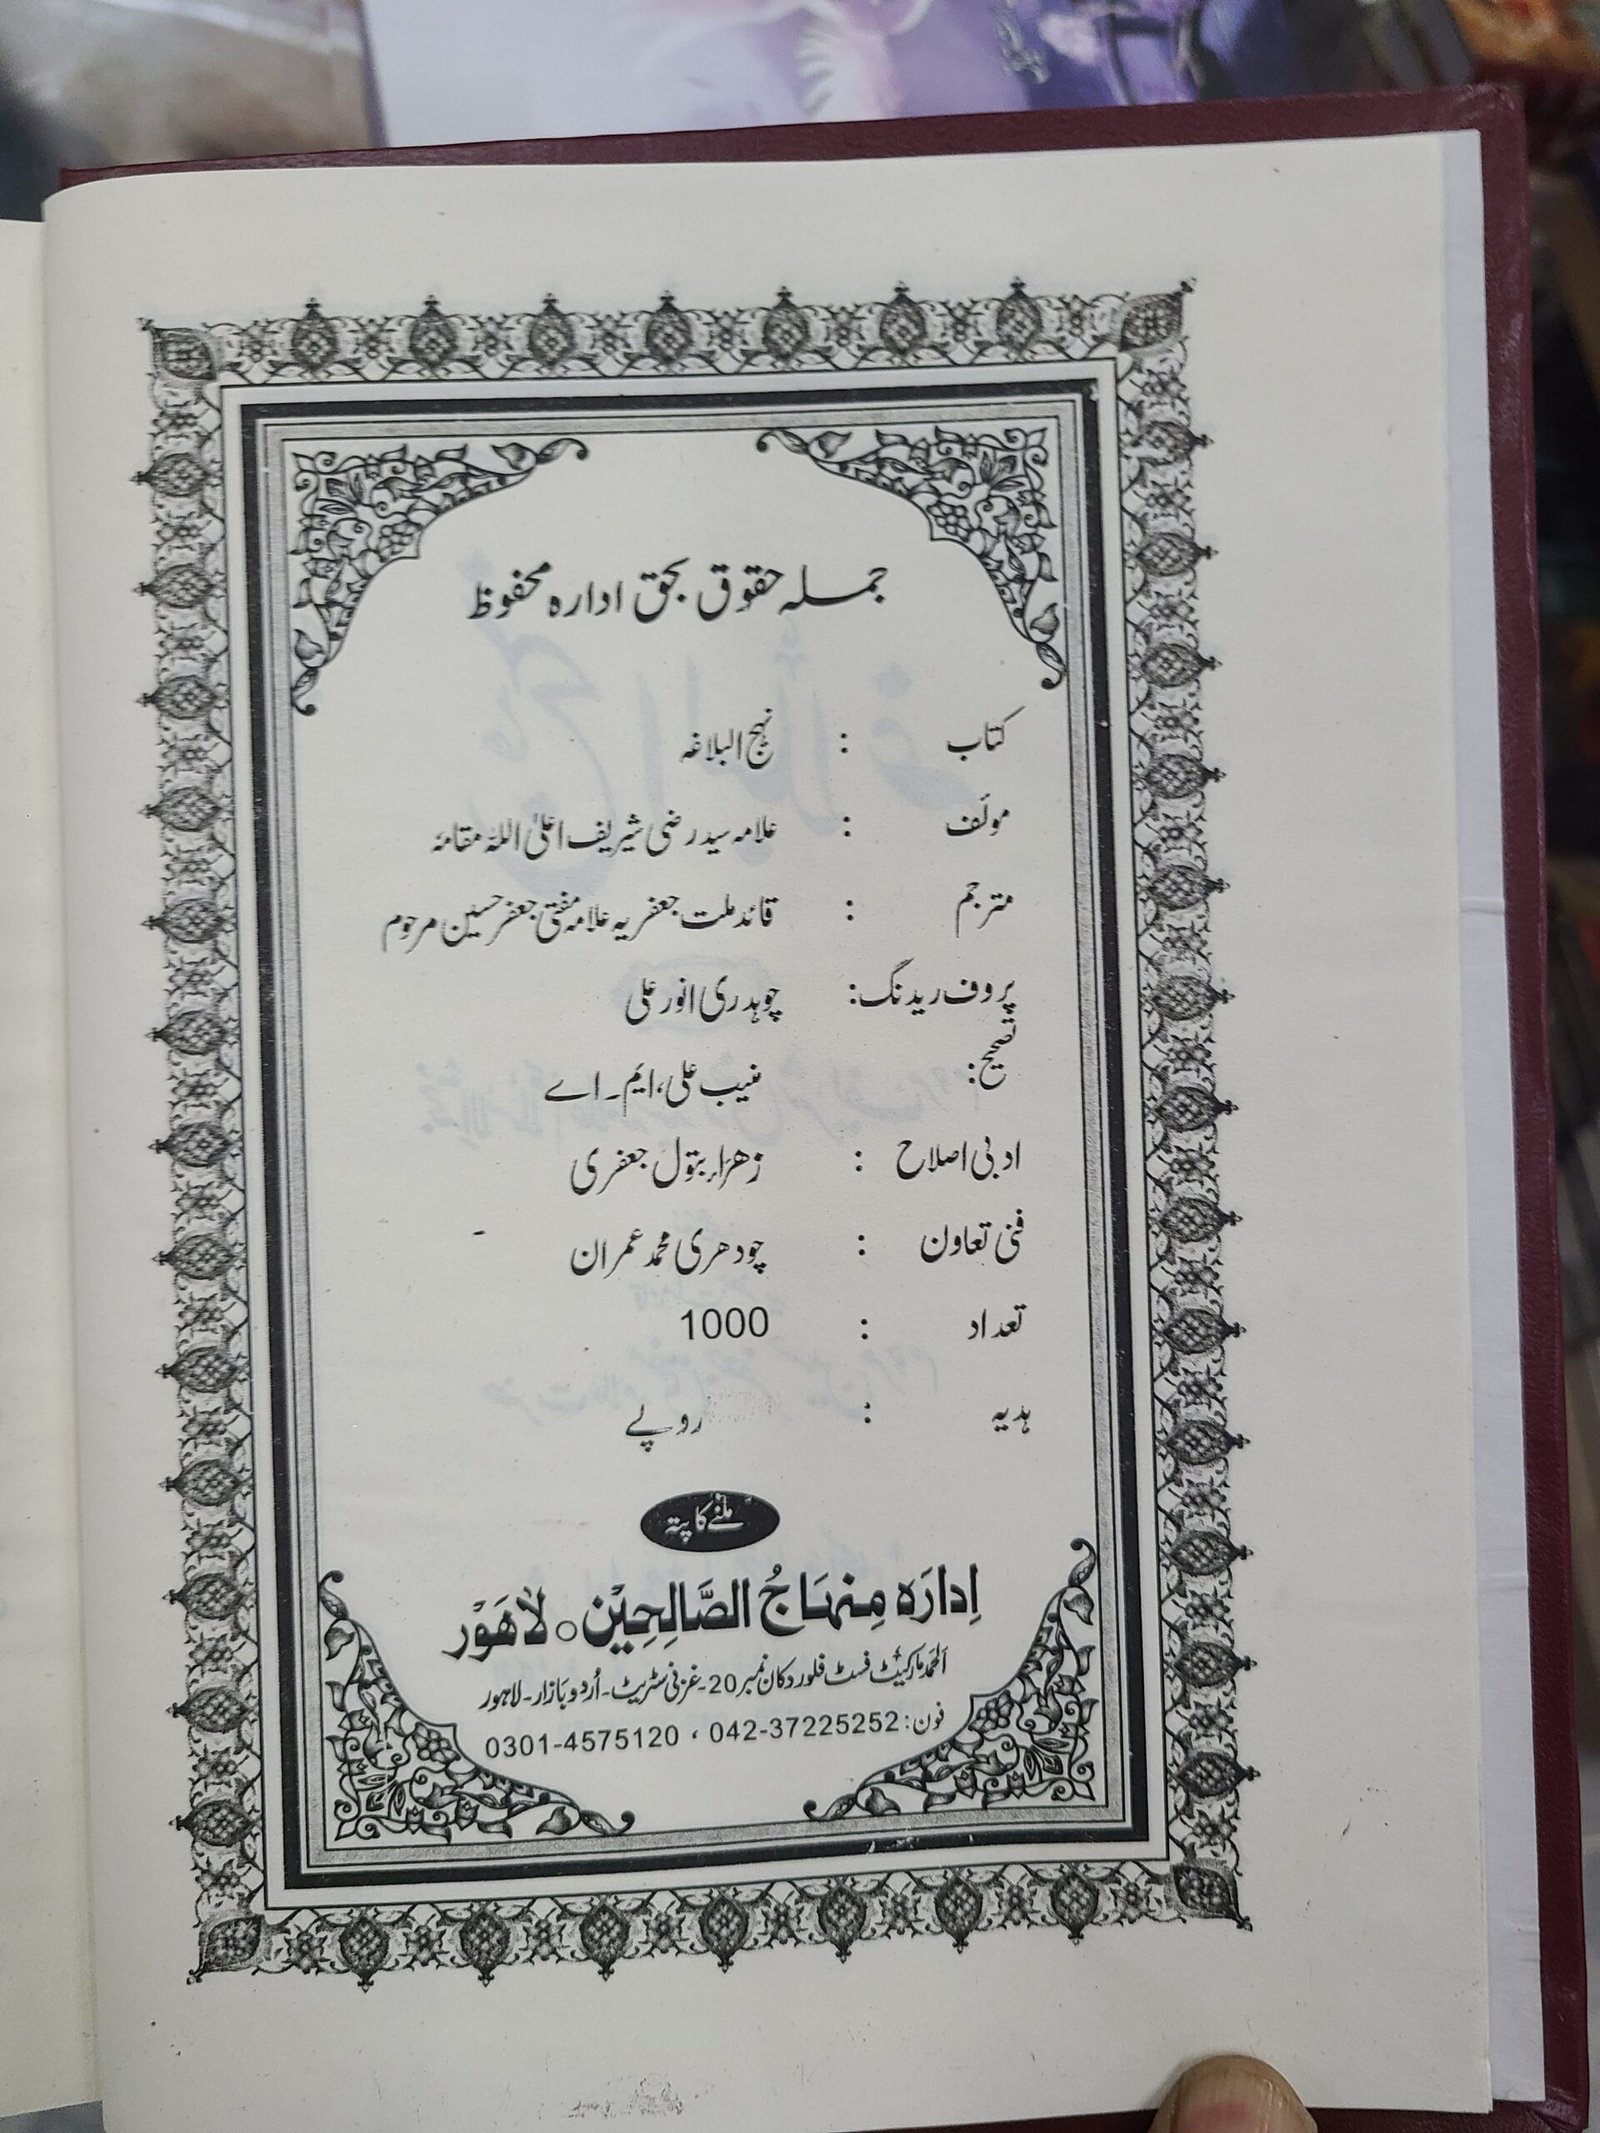 جملہ حقوق بحق ادارہ محفوظ
کتاب : نہج البلاغہ
مولف : علامہ سید رضی شریف اعلیٰ اللہ مقامہ
مترجم : قائد ملت جعفریہ علامہ مفتی جعفر حسین مرحوم
پروف ریڈنگ: چوہدری انور علی
تصحیح: منیب علی، ایم۔ اے
ادبی اصلاح : زھراء بتول جعفری
فنی تعاون : چودھری محمد عمران
تعداد : 1000
ہدیہ : روپے
ملنے کا پتہ
اِدارَہ مِنہَاجُ الصَّالِحِیْن ○ لاَھَوْر
اَلحَمد مارکیٹ فسٹ فلور دکان نمبر 20۔ غزنی سٹریٹ۔ اُردو بازار۔ لاہور
فون: 042-37225252 ، 0301-4575120